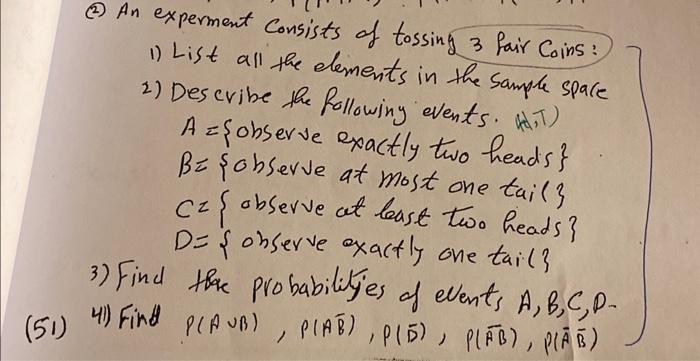 ② An experment Consists of tossing 3 fair Coins:
1) List all the elements in the Sample space
2) Describe the following events. (H,T)
A = {observe exactly two heads}
B = {observe at most one tail}
C = { observe at least Two heads}
D = { observe exactly one tail}
3) Find the probabilities of events A, B, C, D-
(51) 4) Find P(A∪B) , P(AB̄) , P(D̄) , P(ĀB) , P(ĀB̄)